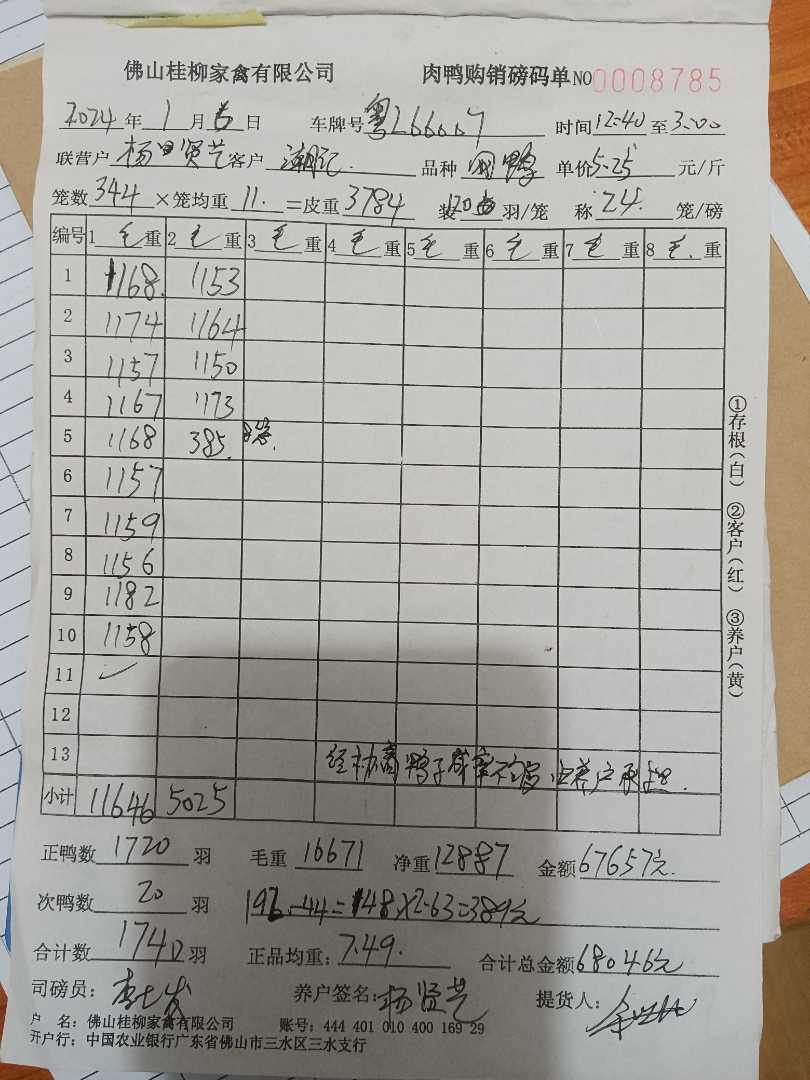 佛山桂柳家禽有限公司 肉鸭购销磅码单 NO 0008785
2024年1月6日 车牌号粤 时间12:40至3:00
联营户杨贤艺 客户潮记 品种肉鸭 单价5.25元/斤
笼数344×笼均重11.=皮重3784 装 羽/笼 称24.笼/磅
编号 1毛重 2毛重 3毛重 4毛重 5毛重 6毛重 7毛重 8毛重
1 1168. 1153
2 1174 1164
3 1157 1150
4 1167 1173
5 1168 385.
6 1157
7 1159
8 1156
9 1182
10 1158
11 ✓
12
13 鸭子 养户承担.
小计 11646 5025
正鸭数1720羽 毛重16671 净重12887 金额67657元
次鸭数20羽 192-44=148×2.63=389元
合计数1740羽 正品均重:7.49. 合计总金额68046元
司磅员: 养户签名:杨贤艺 提货人:
户 名:佛山桂柳家禽有限公司 账号:444 401 010 400 169 29
开户行:中国农业银行广东省佛山市三水区三水支行
①存根(白) ②客户(红) ③养户(黄)